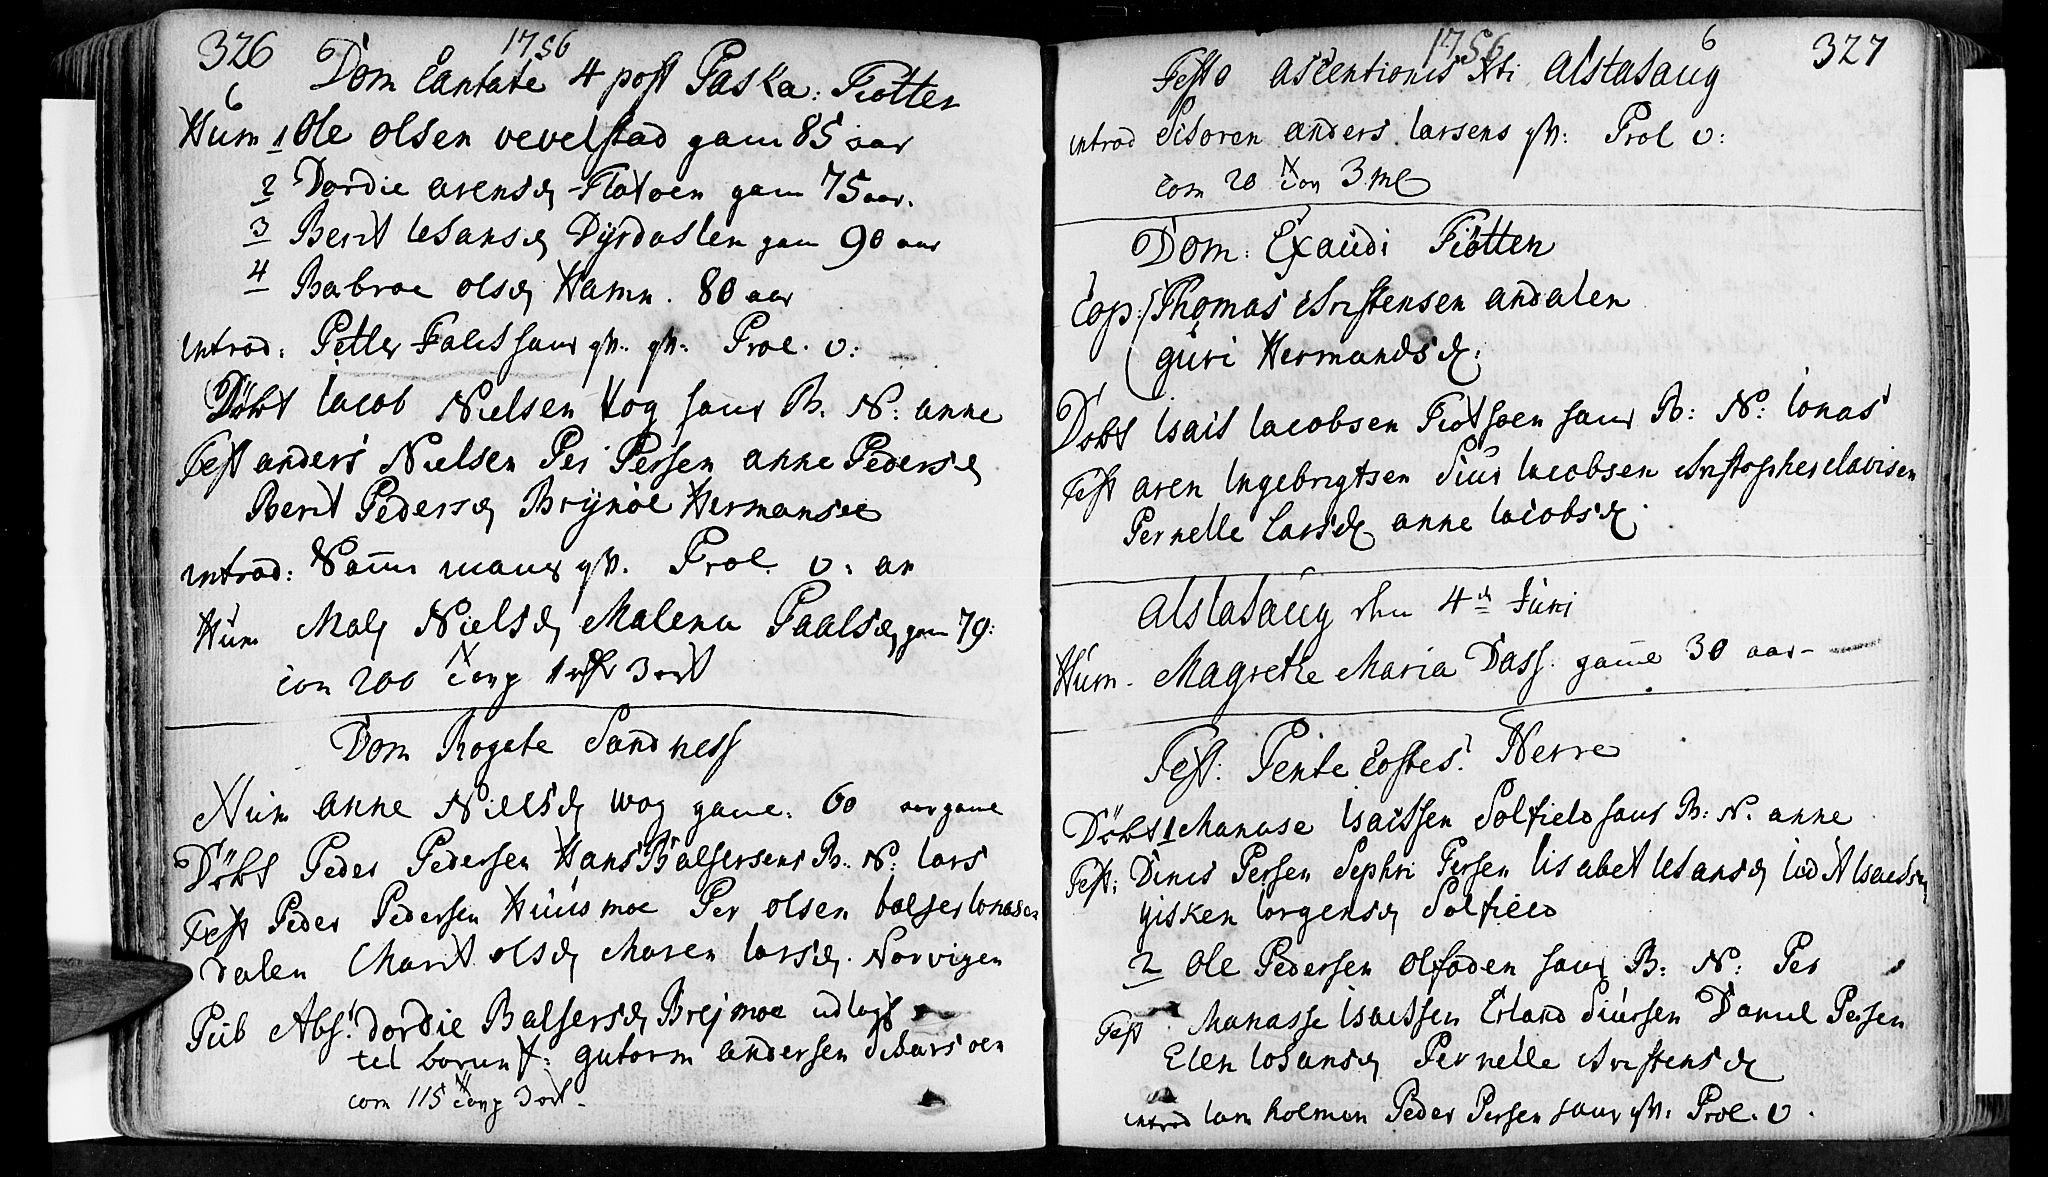 326
1756
6
Dom Cantate 4 post Paska: Tiotten
Hum 1 Ole olsen vevelstad gam 85 aar
2 Dordie arensd Flotoen gam 75 aar.
3 Berit Iohansd Dyrdaslen gam 90 aar
4 Barbroe olsd Hamn. 80 aar
introd: Petter Falch saur qv: Prol. v:
Döbt Iacob Nielsen Hog saur B. N: anne
Test anders Nielsen Per Persen anne Pedersd
Berit Pedersd Brynöe Hermansd
introd: qv. Prol. v: an
Hum Mal Nielsd Malena Paalsd gam 79:
con 200 3 ort
Dom Rogate Sandness
Hum anne Nielsd wog game. 60 aar game
Döbt Peder Pedersen Hans Balsersens B: N: Lars
Test Peder Pedersen Huusmoe Per olsen balser Ionasen
dalen Marit olsd Maren Larsd. Norvigen
Pub Abs: Dordie Balsersd Brejmoe udlagt
til barnf: gutorm andersen
com 115 3 ort.
327
1756
6
Festo ascentionis Xti Alstahaug
introd anders Larsens qv: Prol v:
com 20 3 m
Dom: Exaudi Tiötten
Cop: Thomas Christensen andalen
guri Hermandsd:
Döbt Isach Iacobsen Tiotsoen saur B: N: Ionas
Test aren Ingebrigtsen Siur Iacobsen Christopher Clavisen
Pernelle Larsd anne Iacobsd
Alstahaug den 4de Juni
Hum. Magrethe Maria Dass. game 30 aar
Fest: Pentecostes: Herre
Döbt 1 Manase Isacssen Solfield saur B: N. anne
Test: Dinis Persen Sephri Persen Lisabet Iohansd
gisken Iorgensd Solfield
2 Ole Pedersen saur B: N: Per
Test Manasse Isacssen Erland Siursen Daniel Persen
Elen Iohansd Pernelle Christensd
introd holmen Peder Persen saur qv: Prol. v.